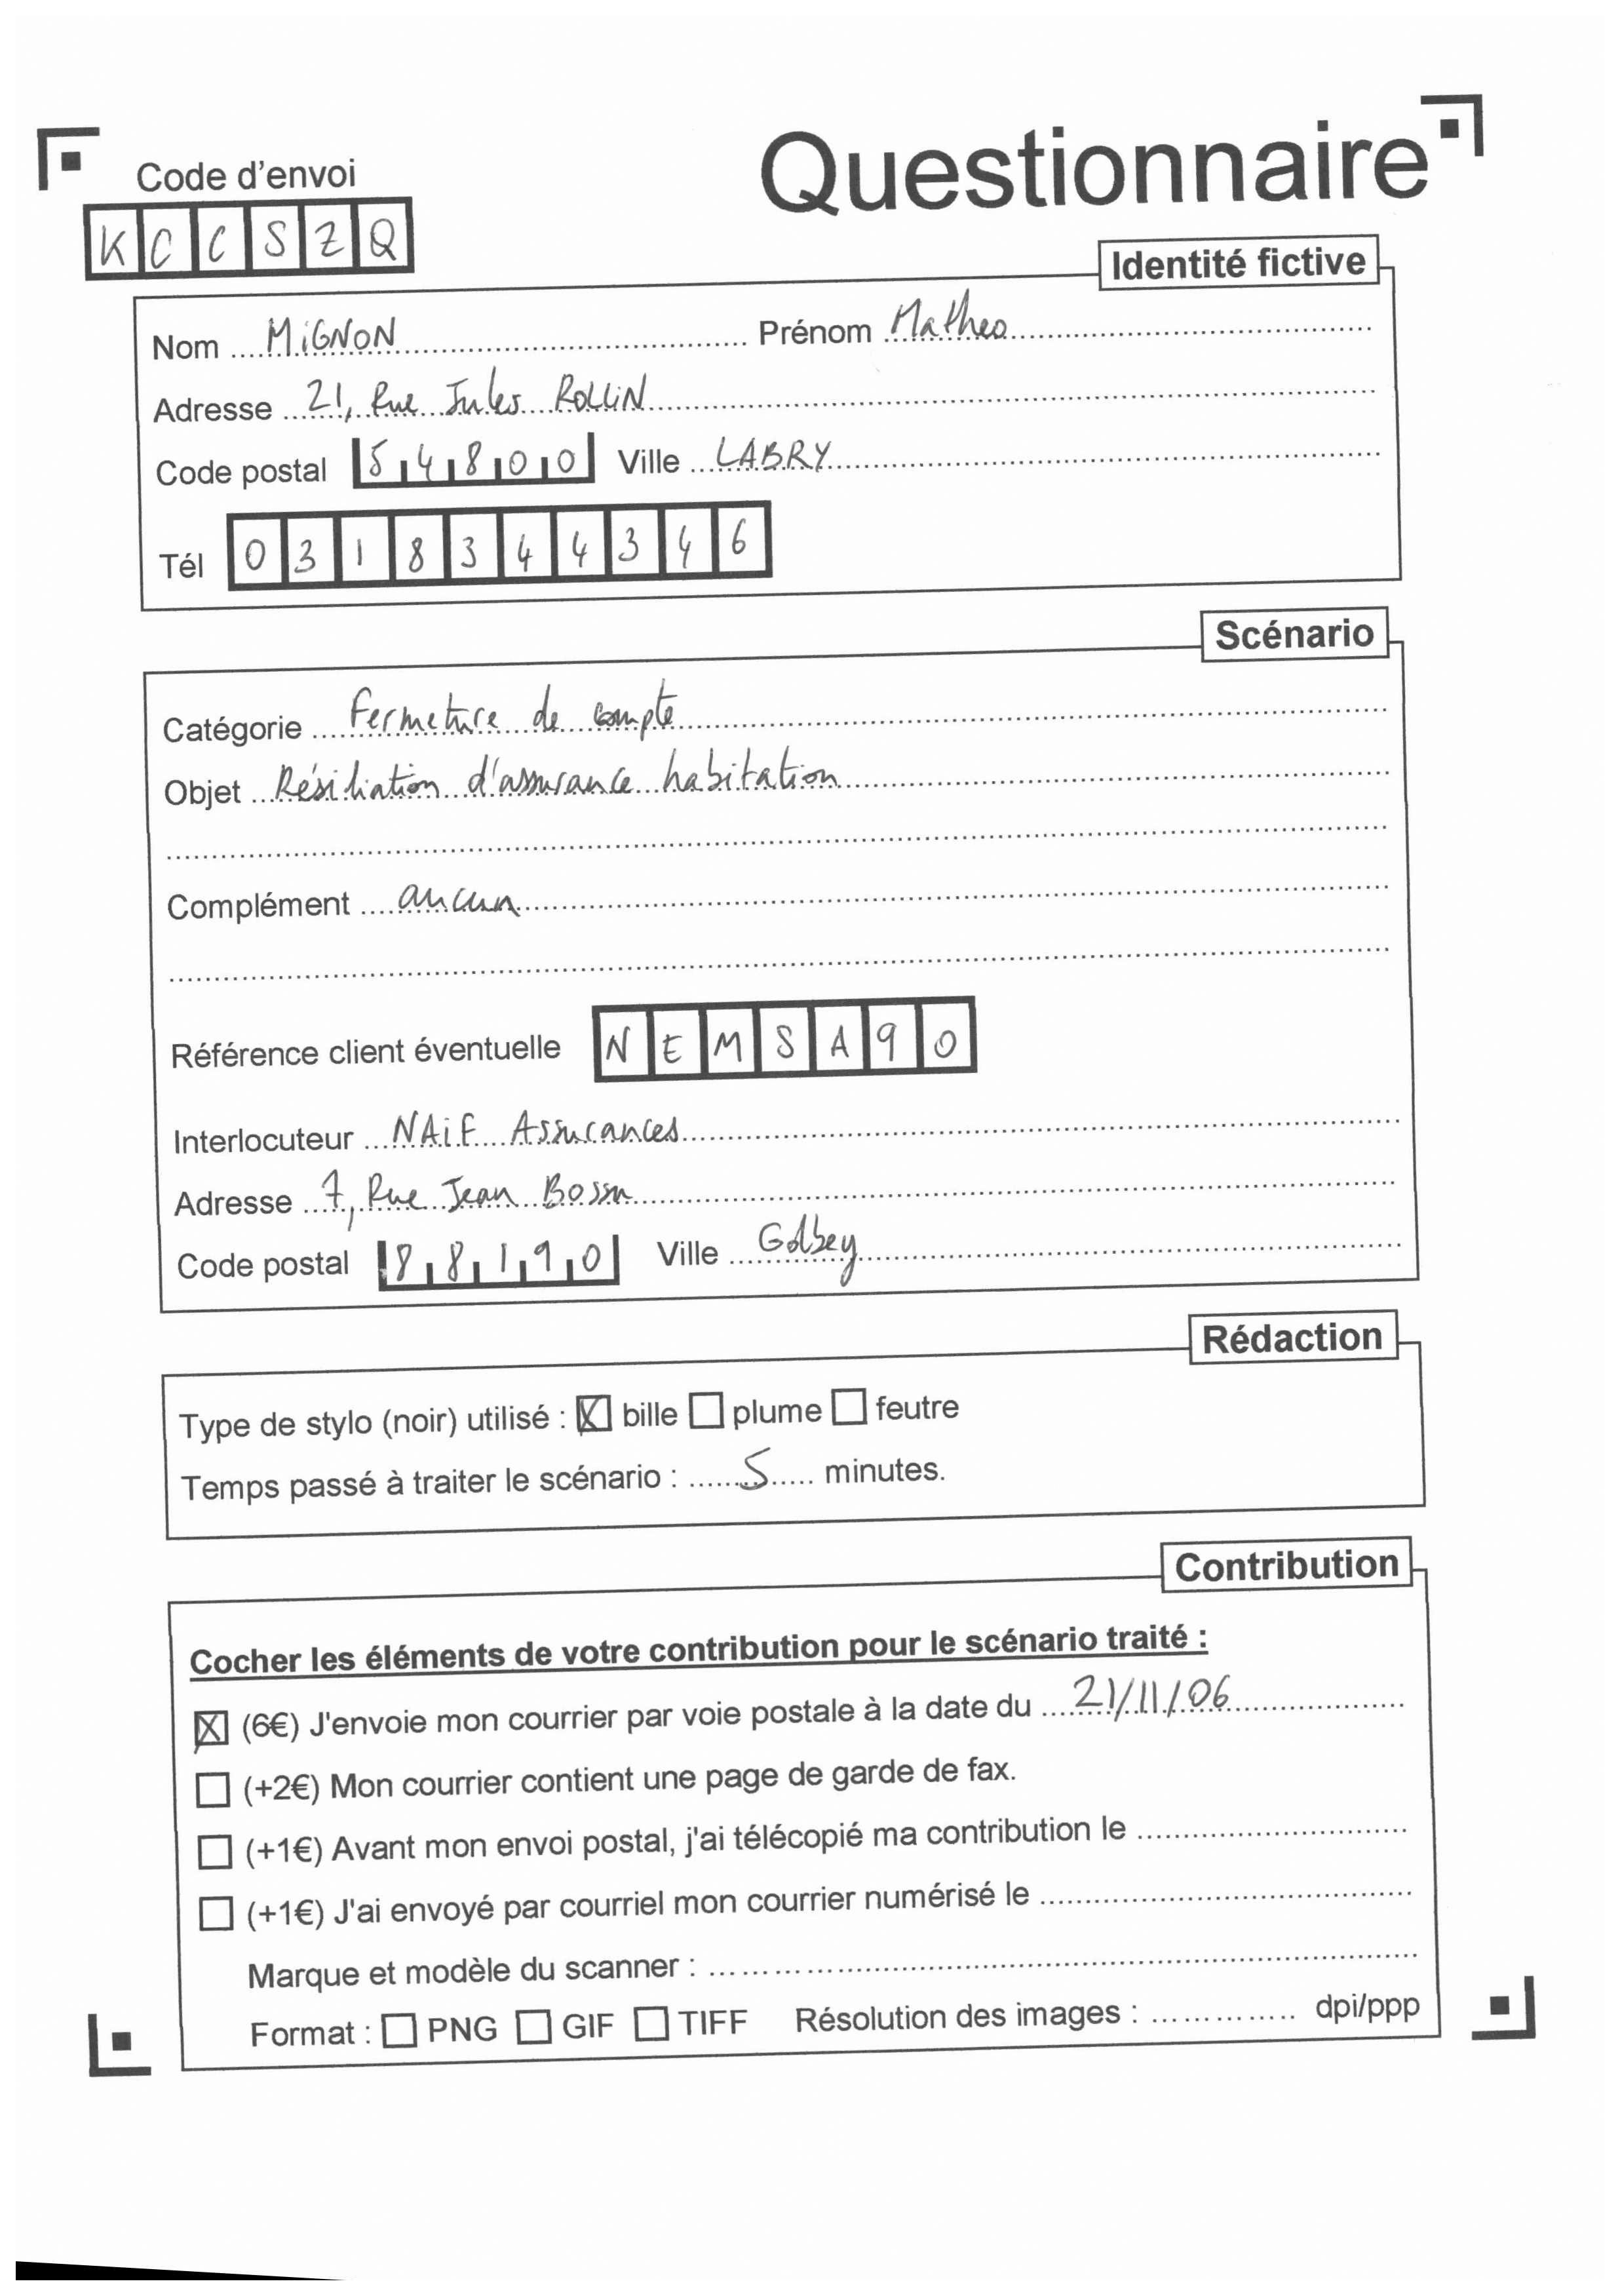 Questionnaire
Code d'envoi
K C C S Z Q
Identité fictive
Nom MiGNON Prénom Matheo
Adresse 21, Rue Jules ROLLiN
Code postal 54800 Ville LABRY
Tél 0318344346
Scénario
Catégorie Fermeture de compte
Objet Résiliation d'assurance habitation
Complément aucun
Référence client éventuelle NEMSA90
Interlocuteur NAiF Assurances
Adresse 7, Rue Jean Bossu
Code postal 88190 Ville Golbey
Rédaction
Type de stylo (noir) utilisé : ☒ bille ☐ plume ☐ feutre
Temps passé à traiter le scénario : 5 minutes.
Contribution
Cocher les éléments de votre contribution pour le scénario traité :
☒ (6€) J'envoie mon courrier par voie postale à la date du 21/11/06
☐ (+2€) Mon courrier contient une page de garde de fax.
☐ (+1€) Avant mon envoi postal, j'ai télécopié ma contribution le
☐ (+1€) J'ai envoyé par courriel mon courrier numérisé le
Marque et modèle du scanner :
Format : ☐ PNG ☐ GIF ☐ TIFF Résolution des images : dpi/ppp